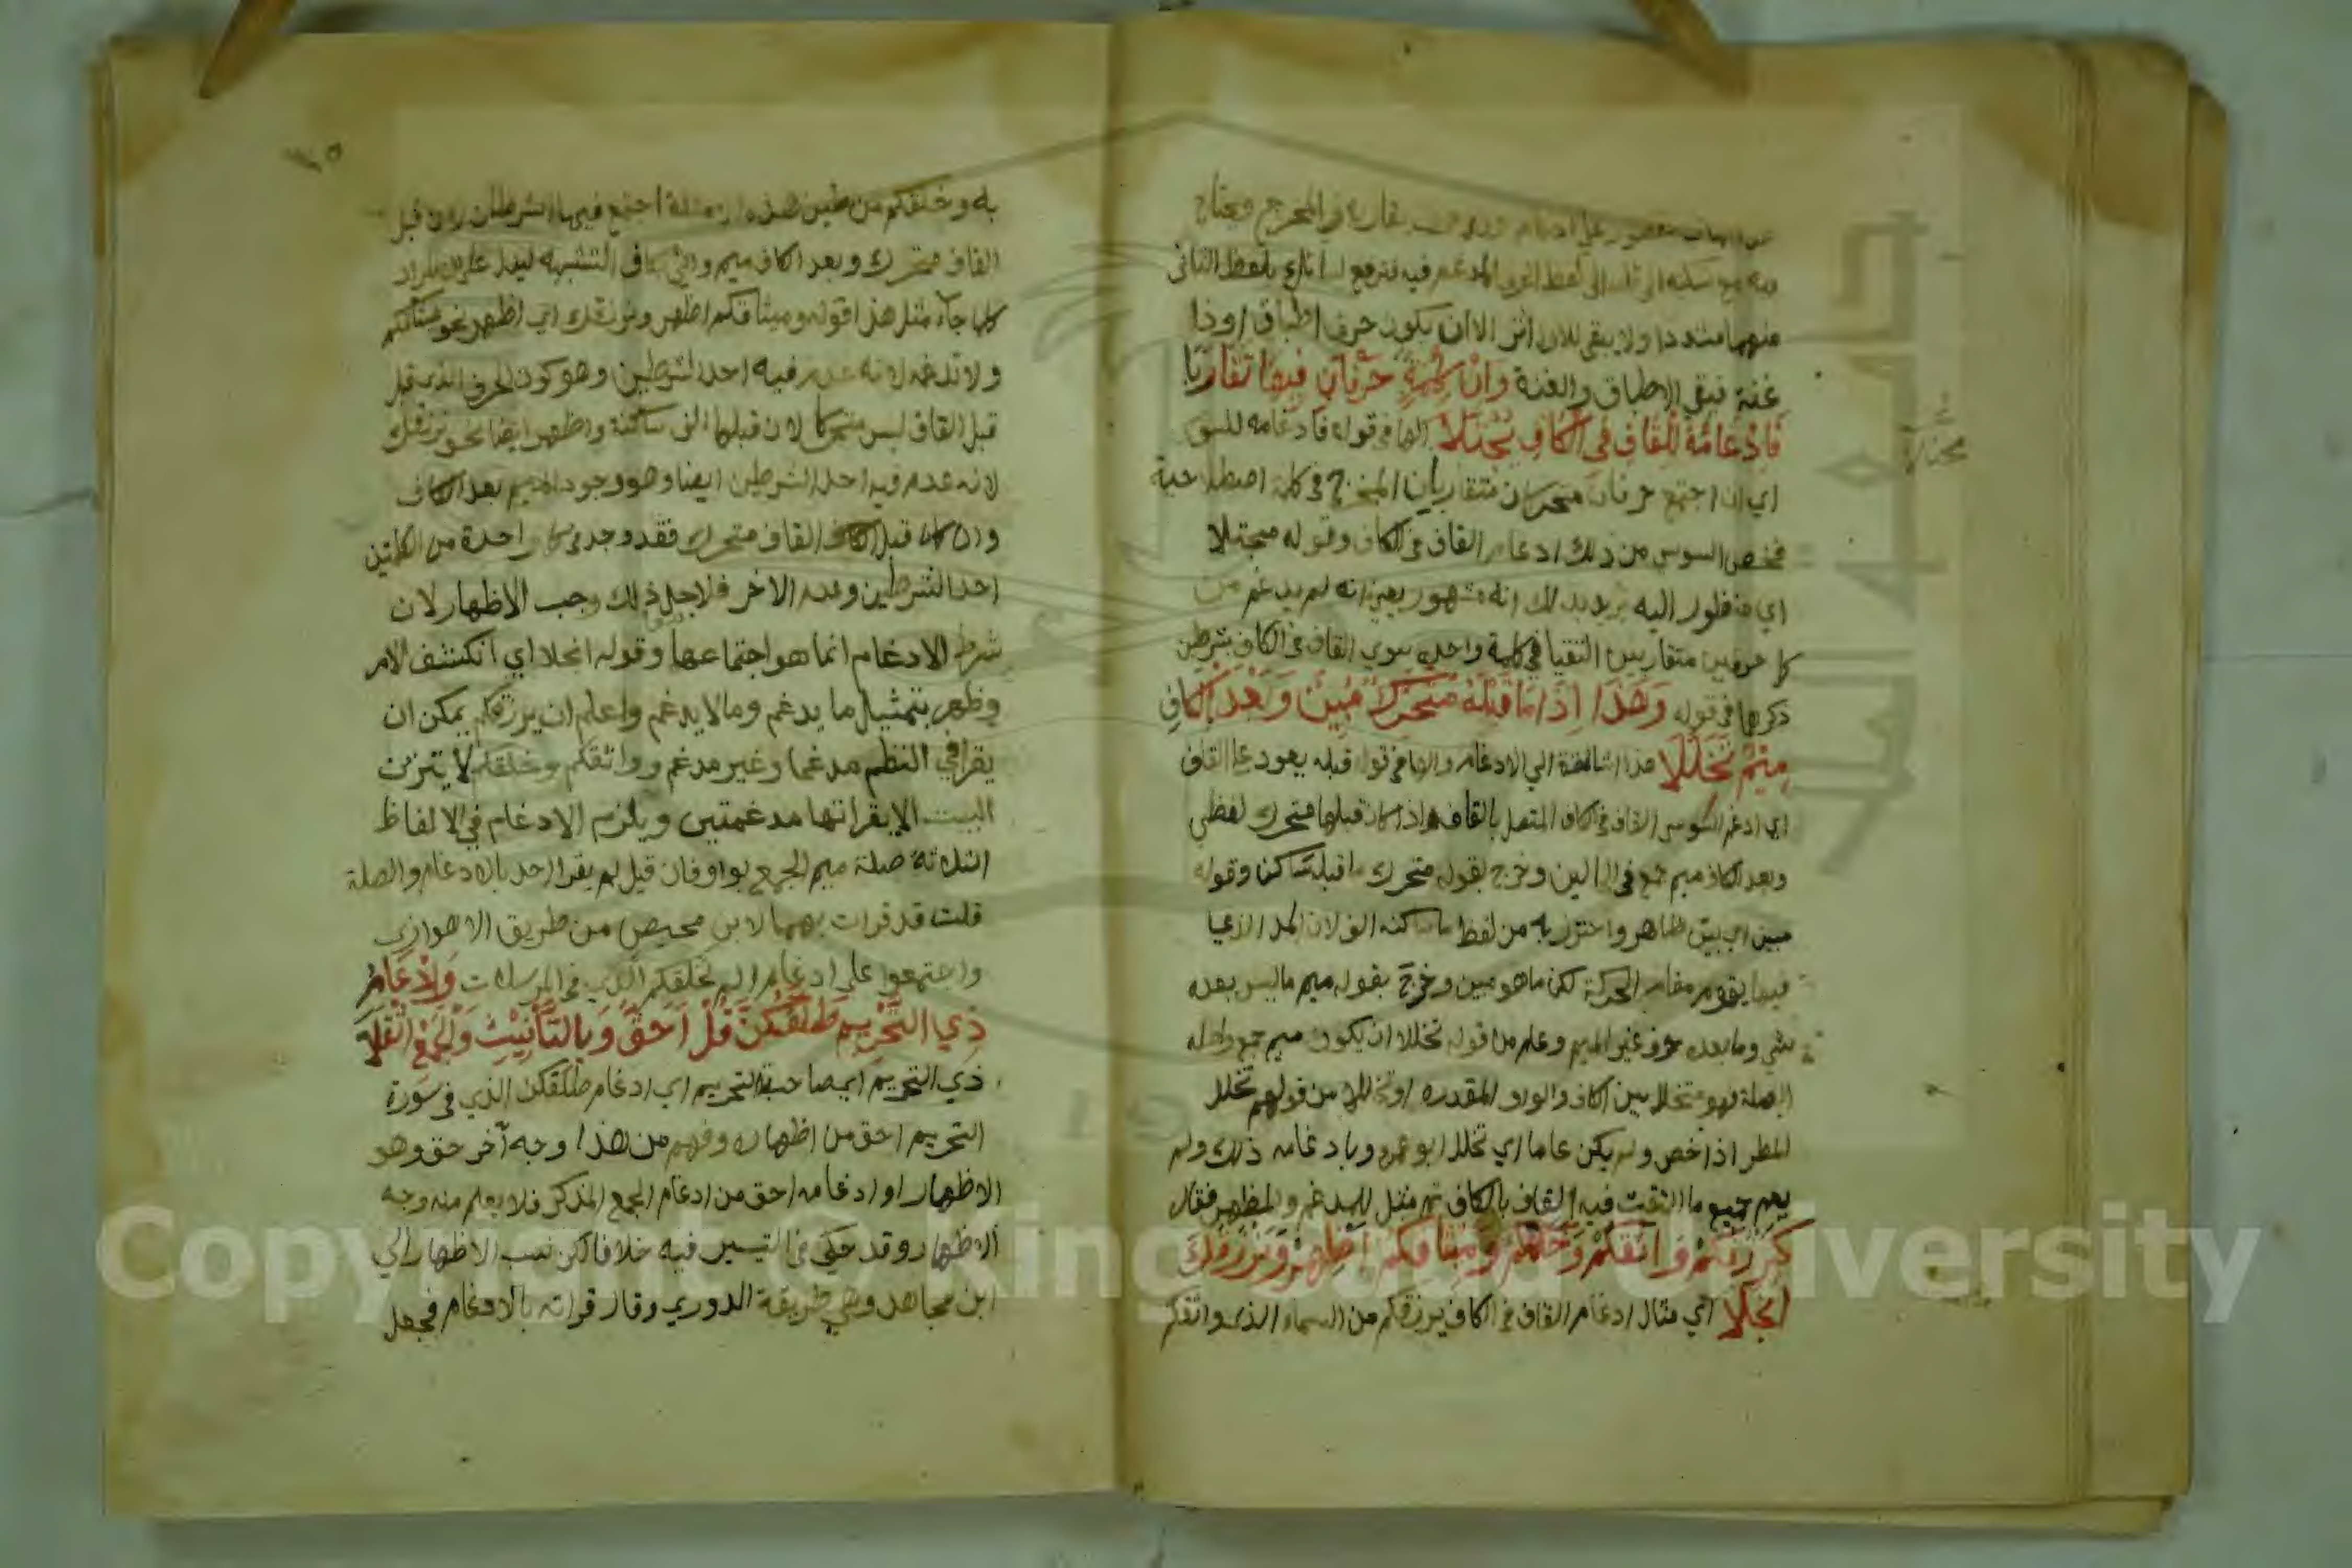 في المخرج ويحتاج
فيه مع الى لفظ المدغم فيه فترفع بلفظ الثاني
منهما مشددا ولا يبقى للاول اثر الا ان يكون حرف اطباق او ذا
غنة فيبقى الاطباق والغنة وَاِنْ كِلْمَةٌ حَرْفَانِ فِيهَا تَقَارَبَا
فَاِدْغَامُهُ لِلْقَافِ فِي الْكَافِ مُجْتَلَا الها في قوله فادغامه للسوسي
مجتلا
اي ان اجتمع حرفان متحركان متقاربان المخرج في كلمة اصطلاحية
فخص السوسي من ذلك ادغام القاف في الكاف وقوله مجتلا
اي منظور اليه يريد بذلك انه مشهور يعني انه لم يدغم من
كل حرفين متقاربين التقيا في كلمة واحدة سوي القاف في الكاف بشرطين
ذكرهما في قوله وَهَذَا اِذَا مَا قَبْلَهُ مُتَحَرِّكٌ مُبِينٌ وَبَعْدَ الْكَافِ
مِيْمٌ تَخَلَّلَا هذا اشارة الي الادغام والها في قوله قبله يعود على القاف
اي ادغم السوسي القاف في الكاف المتصل بالقاف اذا كان قبلها متحرك لفظي
وبعد الكاف ميم جمع في الحالين وخرج بقوله متحرك ما قبله ساكن وقوله
مبين اي بين ظاهر واحترز به من لفظ ما ساكنه الف لان المد
فيها يقوم مقام الحركة لكن ما هو مبين وخرج بقوله ميم ما ليس بعده
شي وما بعده حرف غير الميم وعلم من قوله تخللا ان يكون ميم جمع واصله
الصلة فهو متخلل بين الكاف والواو المقدره او تخللا من قولهم تخلل
المطر اذا خص ولم يكن عاما اي تخلل ابو عمرو بادغامه ذلك ولم
يعم جميع ما التقت فيه القاف بالكاف ثم مثل للمدغم والمظهر فقال
كَيَرْزُقْكُمْ وَاثَقْكُمْ وَخَلَقْكُمْ وَمِيثَاقَكُمْ اَظْهِرْ وَنَرْزُقُكَ
انْجَلَا اي مثال ادغام القاف في الكاف يرزقكم من السماء الذي واثقكم
به وخلقكم من طين هذه الامثلة اجتمع فيها الشرطان لان قبل
القاف متحرك وبعد الكاف ميم واتي بكاف التشبيه ليدل على المراد
كلما جاء مثل هذا قوله وميثاقكم اظهر ونرزقك اي اظهر نحو ميثاقكم
ولا تدغمه لانه عدم فيه احد الشرطين وهو كون الحرف الذي قبل
قبل القاف ليس متحركا لان قبلها الف ساكنة واظهر ايضا نحو نرزقك
لانه عدم فيه احد الشرطين ايضا وهو وجود الميم بعد الكاف
وان كان قبل القاف متحرك فقد وجد في كل واحدة من الكلمتين
احد الشرطين وعدم الاخر فلاجل ذلك وجب الاظهار لان
شرط الادغام انما هو اجتماعهما وقوله انجلا اي انكشف الامر
وظهر بتمثيل ما يدغم وما لا يدغم واعلم ان يرزقكم يمكن ان
يقرا في النظم مدغما وغير مدغم وواثقكم وخلقكم لا يتزن
البيت الا بقراتها مدغمتين ويلزم الادغام في الالفاظ
الثلاثة صلة ميم الجمع بواو فان قيل لم يقرا احد بالادغام والصلة
قلت قد قرات بهما لابن محيصن من طريق الاهوازي
واجتمعوا على ادغام الم نخلقكم الذي في المرسلات وَاِدْغَامُ
ذِي التَّحْرِيمِ طَلَّقَكُنَّ قُلْ اَحَقُّ وَبِالتَّأْنِيثِ وَالْجَمْعِ اُثْقِلَا
ذي التحريم اي صاحبة التحريم اي ادغام طلقكن الذي في سورة
التحريم احق من اظهاره وفهم من هذا وجه آخر حق وهو
الاظهار او ادغامه احق من ادغام الجمع المذكر فلا يعلم منه وجه
الاظهار وقد حكى في التيسير فيه خلافا لكن نسب الاظهار الي
ابن مجاهد وهي طريقة الدوري وقال قراته بالادغام فجعل
Copyright © King Saud University